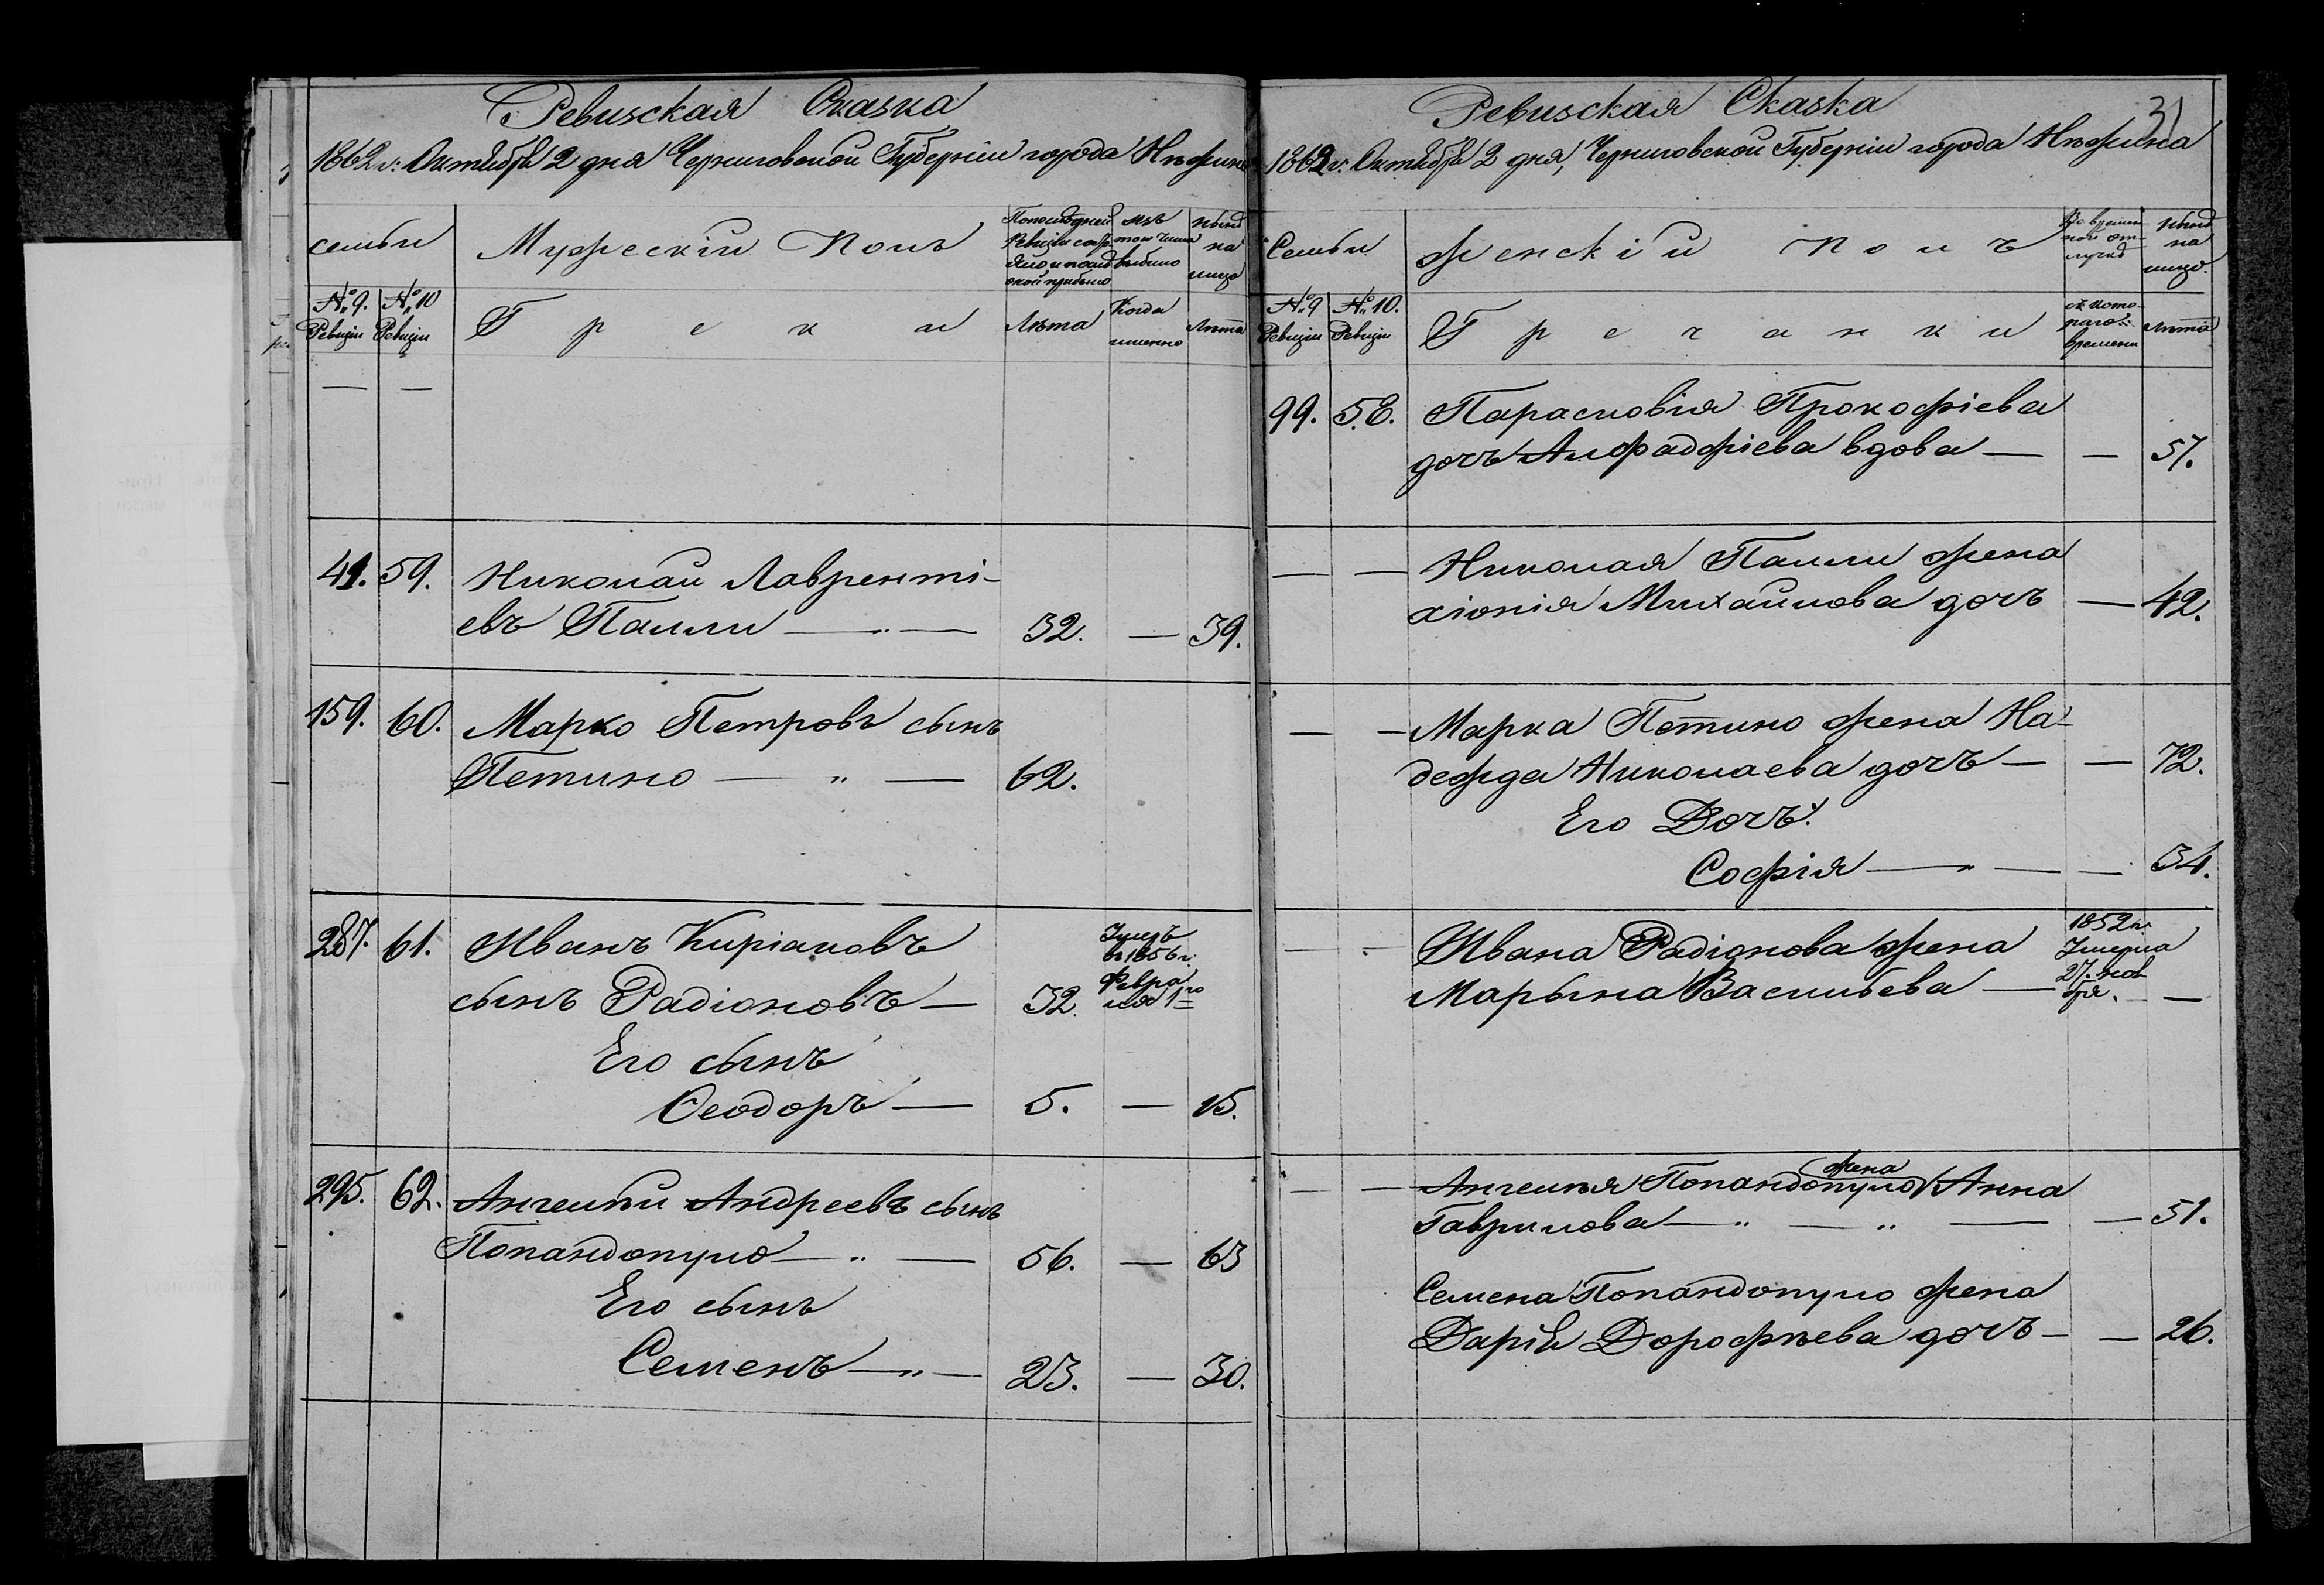 Ревизская Сказка
1862 г: Октября 2 дня Черниговской Губерніи города Нѣжина
семьи
Мужескій Полъ
нынѣ на лицо
№ 9. Ревизіи
№ 10 Ревизіи
Греки
Лѣта
Когда именно
Лѣта
— —
41. 59. Николай Лавренті-
евъ Палли — 32. — 39.
159. 60. Марко Петровъ сынъ
Петино — " — 62.
287. 61. Иванъ Киріаковъ
сынъ Радіоновъ — 32. Умеръ въ 1856 г. Февраля 1го
Его сынъ
Ѳеодоръ — 5. — 15.
295. 62. Ангелѣй Андреевъ сынъ
Попандопуло — " — 56. — 63
Его сынъ
Семенъ — " — 23. — 30.
31
Ревизская Сказка
1862 г. Октября 2 дня, Черниговской Губерніи города Нѣжина
Семьи
Женскій Полъ
Во времен-
ной от-
лучкѣ
нынѣ на лицо.
№ 9 Ревизіи
№ 10. Ревизіи
Гречанки
съ кото-
раго
времени
Лѣта
99. 58. Парасковія Прокофіева
дочь вдова — — 57.
— — Николая Палли жена
Хіонія Михайлова дочь — 42.
— — Марка Петино жена На-
дежда Николаева дочь — — 72.
Его Дочь:
Софія — " — — 34.
— — Ивана Радіонова жена
Марьина Васильева — 1852 г. Умерла 27. ноя бря. —
— — Ангелѣя Попандопуло жена Анна
Гаврилова — " — " — — 51.
Семена Попандопуло жена
Дарія Дорофѣева дочь — — 26.